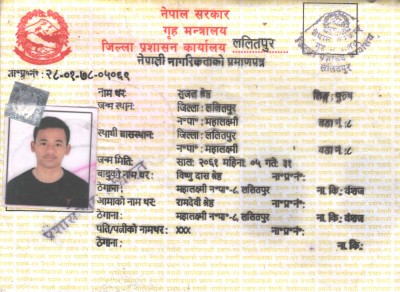 नेपाल सरकार
गृह मन्त्रालय
जिल्ला प्रशासन कार्यालय ललितपुर
नेपाली नागरिकताको प्रमाणपत्र
ना॰प्र॰नं॰: २८-०१-७८-०५०६९
नाम थर: सुजल श्रेष्ठ लिङ्ग: पुरुष
जन्म स्थान: जिल्ला: ललितपुर
न॰पा॰: महालक्ष्मी वडा नं.: ८
स्थायी बासस्थान: जिल्ला: ललितपुर
न॰पा॰: महालक्ष्मी वडा नं.: ८
जन्म मिति: साल: २०६१ महिना: ०५ गते: ३१
बाबुको नाम थर: विष्णु दास श्रेष्ठ ना॰प्र॰नं॰:
ठेगाना: महालक्ष्मी न॰पा-८, ललितपुर ना. कि: वंशज
आमाको नाम थर: रामदेवी श्रेष्ठ ना॰प्र॰नं॰:
ठेगाना: महालक्ष्मी न॰पा॰-८ ललितपुर ना. कि: वंशज
पति/पत्नीको नामथर: xxx ना॰प्र॰नं॰:
ठेगाना: ना. कि: